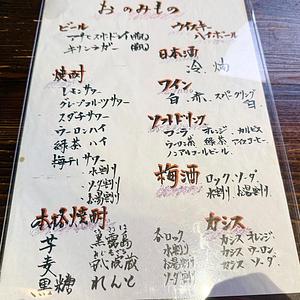 おのみもの
ビール
キリンラガー
焼酎
レモンサワー
グレープフルーツサワー
スダチサワー
ウーロンハイ
緑茶ハイ
梅干しサワー
水割り
ソーダ割り
お湯割り
本格焼酎
芋 黒霧島
麦 八蔵
黒糖 れんと
各ロック
水割り
お湯割り
ソーダ割り
ウイスキー
ハイボール
日本酒
冷 燗
ワイン
白 赤 スパークリング
ソフトドリンク
コーラ オレンジ カルピス
ウーロン茶 緑茶 アイスコーヒー
ノンアルコールビール
梅酒
ロック、ソーダ
水割り、お湯割り
カシス
カシス オレンジ
カシス ウーロン
カシス ソーダ